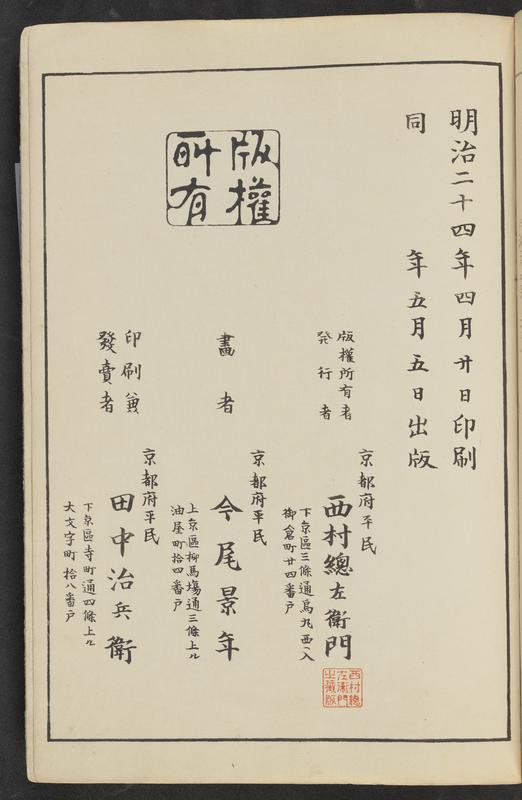 明治二十四年四月廿日印刷
同年五月五日出版
版權
所有
版權所有者
発行者
京都府平民
西村總左衛門
下京區三條通烏丸西入
御倉町廿四番戸
西村總
左衛門
出藏版
畫者
京都府平民
今尾景年
上京區柳馬塲通三條上ル
油屋町拾四番戸
印刷兼
發賣者
京都府平民
田中治兵衛
下京區寺町通四條上ル
大文字町拾八番戸